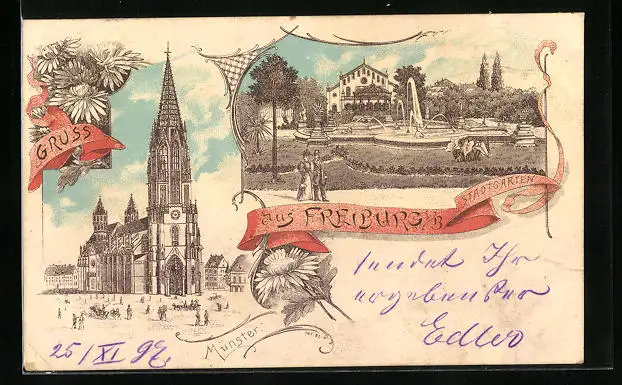 GRUSS
aus FREIBURG i/B
STADTGARTEN
sendet Ihr
ergebenster
Edler
Münster.
25/XI 97.